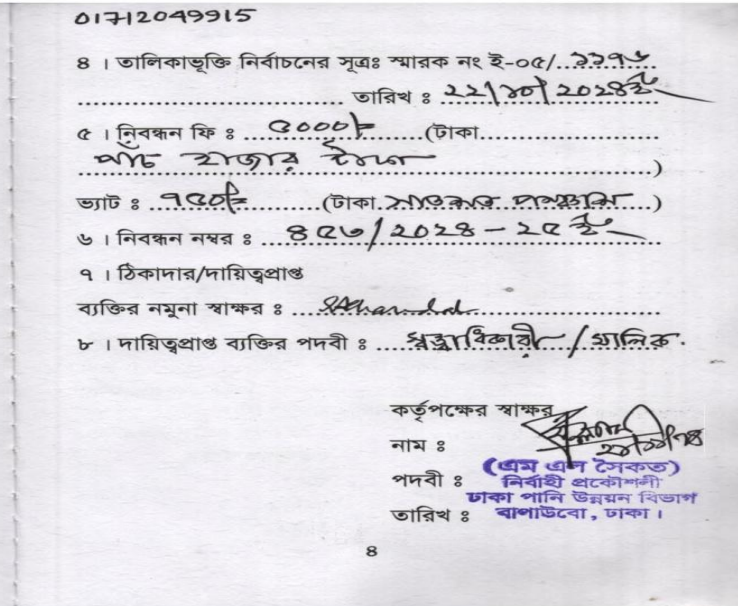 01712049915
৪ । তালিকাভূক্তি নির্বাচনের সূত্রঃ স্মারক নং ই-০৫/..১১৭৬
........ তারিখ ঃ ২২/১০/২০২৪ইং
৫ । নিবন্ধন ফি ঃ ৫০০০/= (টাকা........
পাঁচ হাজার টাকা ........)
ভ্যাট ঃ ৭৫০/= (টাকা সাতশত পঞ্চাশ )
৬ । নিবন্ধন নম্বর ঃ ৪৫৬/২০২৪-২৫ ইং
৭ । ঠিকাদার/দায়িত্বপ্রাপ্ত
ব্যক্তির নমুনা স্বাক্ষর ঃ
৮ । দায়িত্বপ্রাপ্ত ব্যক্তির পদবী ঃ স্বত্বাধিকারী / মালিক.
কর্তৃপক্ষের স্বাক্ষর
নাম ঃ (এম এল সৈকত)
পদবী ঃ নির্বাহী প্রকৌশলী
ঢাকা পানি উন্নয়ন বিভাগ
তারিখ ঃ বাপাউবো, ঢাকা ।
৪